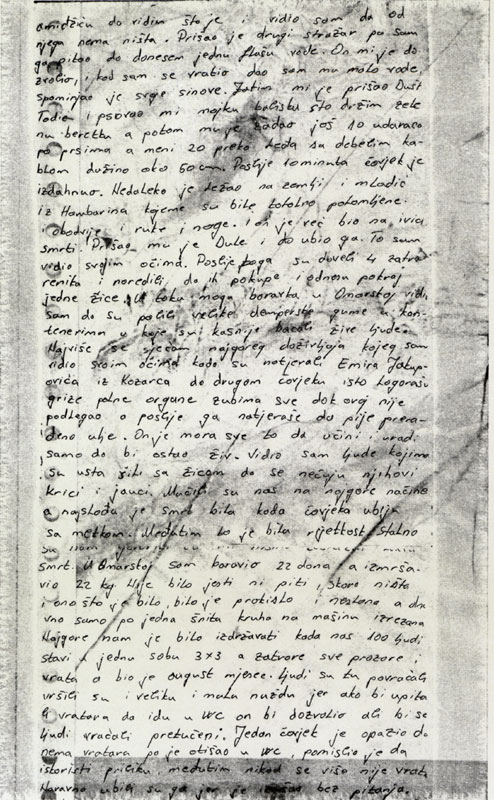 da vidim što je i vidio sam da od
njega nema ništa. Prišao je drugi stražar pa sam
ga pitao da donesem jednu flašu vode. On mi je do
zvolio, i kad sam se vratio dao sam mu malo vode,
spominjao je svoje sinove. Zatim mi je prišao Dušt
Tadić i psovao mi majku balisku što držim zele
nu beretku a potom mu je zadao još 10 udaraca
po prsima a meni 20 preko leđa sa debelim ka-
blom dužine oko 60 cm. Poslije 10 minuta čovjek je
izdahnuo. Nedaleko je ležao na zemlji i mladić
iz Hambarina kojem su bile totalno polomljene
obadvije i ruke i noge. I on je već bio na ivici
smrti. Prišao mu je Dule i do ubio ga. To sam
vidio svojim očima. Poslije toga su doveli 4 zatvo
renika i naredili da ih pokupe i odnesu pokraj
jedne žice. U toku moga boravka u Omarskoj vidi
sam da su palili velike demperske gume u kon-
tenerima u koje su kasnije bacali žive ljude.
Najviše se sjećam najgoreg doživljaja kojeg sam
vidio svoim očima kada su natjerali Emira
iz Kozarca da drugom čovjeku isto logorašu
grize polne organe zubima sve dok ovaj nije
podlegao a poslije ga natjeraše da pije prera-
đeno ulje. On je mora sve to da učini i uradi
samo da bi ostao živ. Vidio sam ljude kojima
su usta šili sa žicom da se nečuju njihovi
krici i jauci. Mučili su nas na najgore načine
a najslađa je smrt bila kada čovjeka ubiju
sa metkom. Međutim to je bila rijetkost. Stalno
smrt. U Omarskoj sam boravio 22 dana a izmrša-
vio 22 kg. Nije bilo jesti ni piti, skoro ništa
i ono što je bilo, bilo je prokislo i neslano a dne
vno samo po jedna šnita kruha na mašinu izrezana
Najgore nam je bilo izdržavati kada nas 100 ljudi
stavi u jednu sobu 3×3 a zatvore sve prozore i
vrata a bio je august mjesec. Ljudi su tu povraćali
vršili su i veliku i malu nuždu jer ako bi upita
li vratara da idu u WC on bi dozvolio ali bi se
ljudi vraćali pretučeni. Jedan čovjek je opazio da
nema vratara pa je otišao u WC, pomislio je da
iskoristi priliku, međutim nikad se više nije vrati
Naravno ubili su ga jer je izašao bez pitanja.